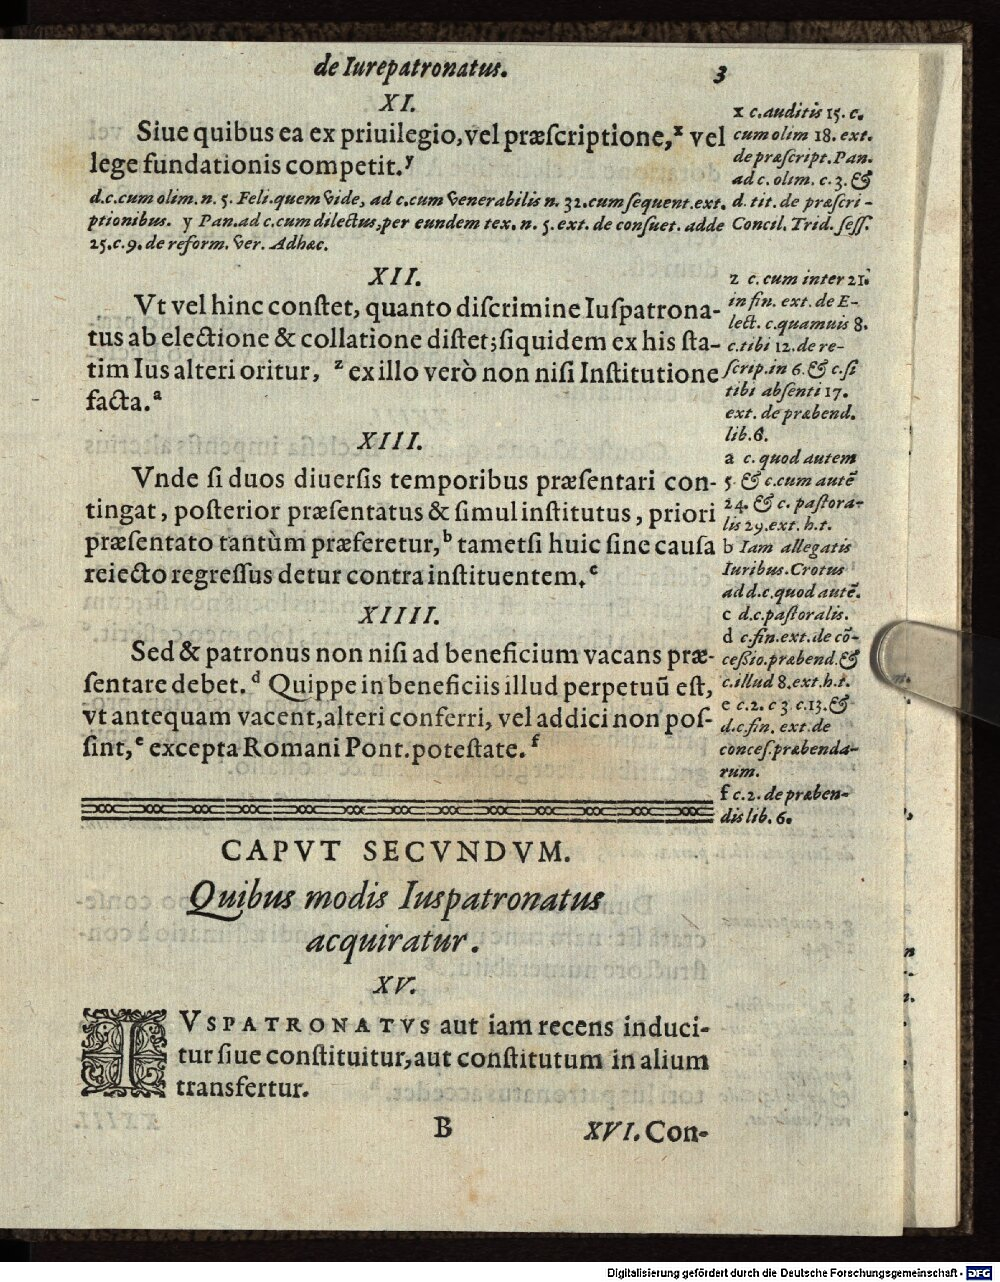 de Iurepatronatus. 3
XI.
Siue quibus ea ex priuilegio, vel præſcriptione,ˣ vel
lege fundationis competit.ʸ
x c. auditis 15. c.
cum olim 18. ext.
de præſcript. Pan.
ad c. olim. c. 3. &
d. c. cum olim. n. 5. Feli. quem vide, ad c. cum venerabilis n. 32. cum ſequent. ext. d. tit. de præſcri-
ptionibus. y Pan. ad c. cum dilectus, per eundem tex. n. 5. ext. de conſuet. adde Concil. Trid. ſeſſ.
25. c. 9. de reform. ver. Adhæc.
XII.
Vt vel hinc conſtet, quanto diſcrimine Iuſpatrona-
tus ab electione & collatione diſtet; ſiquidem ex his ſta-
tim Ius alteri oritur, ᶻ ex illo verò non niſi Inſtitutione
facta.ᵃ
z c. cum inter 21.
in fin. ext. de E-
lect. c. quamuis 8.
c. tibi 12. de re-
ſcrip. in 6. & c. ſi
tibi abſenti 17.
ext. de præbend.
lib. 6.
XIII.
Vnde ſi duos diuerſis temporibus præſentari con-
tingat, poſterior præſentatus & ſimul inſtitutus, priori
præſentato tantùm præferetur,ᵇ tametſi huic ſine cauſa
reiecto regreſſus detur contra inſtituentem.ᶜ
a c. quod autem
5. & c. cum autē
24. & c. paſtora-
lis 29. ext. h. t.
b Iam allegatis
Iuribus. Crotus
ad d. c. quod autē.
c d. c. paſtoralis.
XIIII.
Sed & patronus non niſi ad beneficium vacans præ-
ſentare debet. ᵈ Quippe in beneficiis illud perpetuū eſt,
vt antequam vacent, alteri conferri, vel addici non poſ-
ſint,ᵉ excepta Romani Pont. poteſtate. ᶠ
d c. fin. ext. de cō-
ceſſio. præbend. &
c. illud 8. ext. h. t.
e c. 2. c 3. c. 13. &
d. c. fin. ext. de
conceſ. præbenda-
rum.
f c. 2. de præben-
dis lib. 6.
CAPVT SECVNDVM.
Quibus modis Iuspatronatus
acquiratur.
XV.
IVSPATRONATVS aut iam recens induci-
tur ſiue conſtituitur, aut conſtitutum in alium
transfertur.
B XVI. Con-
Digitalisierung gefördert durch die Deutsche Forschungsgemeinschaft - DFG